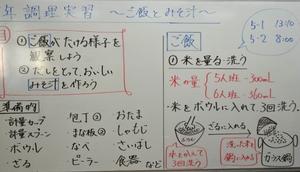 年調理実習 〜ご飯とみそ汁〜
5-1 13:40
5-2 8:00
目
①ご飯がたける様子を
観察しよう
②だしをとって、おいしい
みそ汁を作ろう
準備物
・計量カップ
・計量スプーン
・ボウル
・ざる
包丁②
まな板②
・なべ
・ピーラー
・おたま
・しゃもじ
・さいばし
・食器 など
ご飯
①米を量る・洗う
米の量
5人班-300mL
6人班-360mL
・米をボウルに入れて3回洗う。
ざるに入れる
水をかえて
3回洗う
洗った米
鍋に入れる
ガラス鍋